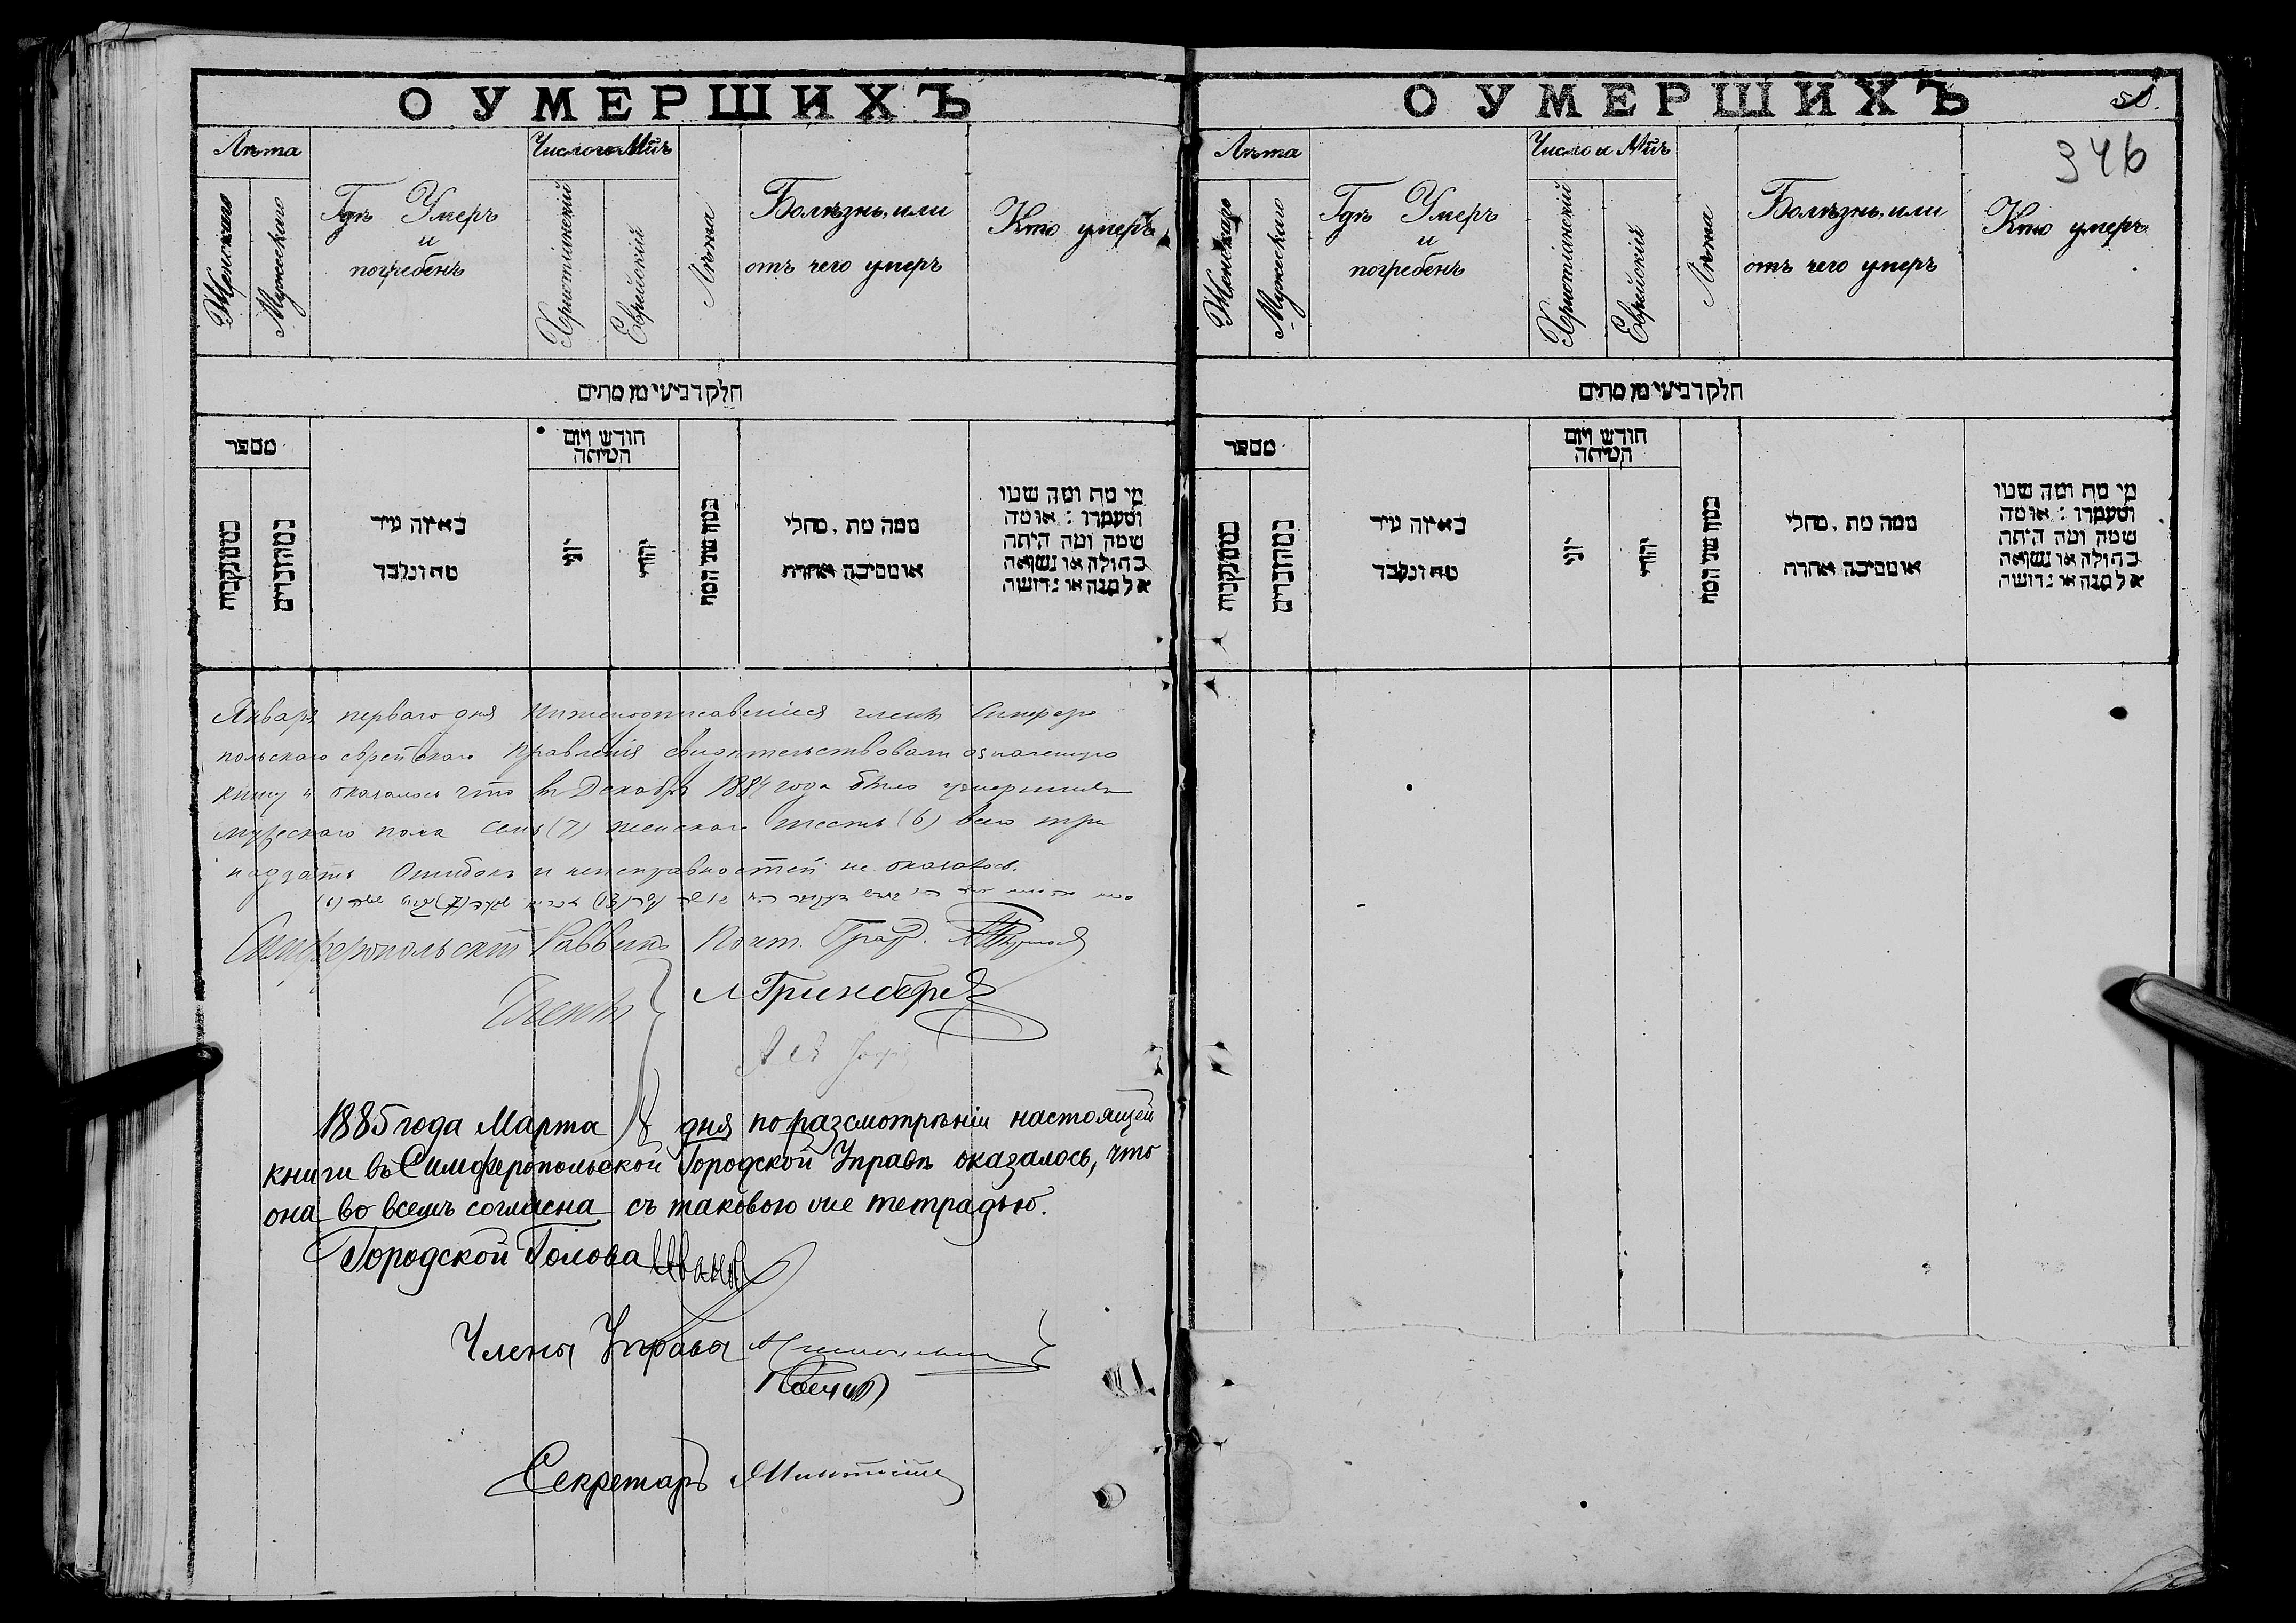 О УМЕРШИХЪ
Лѣта
Женскаго
Мужескаго
Гдѣ Умеръ
и
погребенъ
Число и Мѣс.
Христіанскій
Еврейскій
Лѣта
Болѣзнь, или
отъ чего умеръ
Кто умеръ
חלק רביעי מן מתים
מספר
באיזה עיר
מת ונקבר
חודש ויום
המיתה
יוני
יהודי
ממה מת, מחלי
או מסיבה אחרת
מי מת ומה שמו
ומעמדו : או מה
שמה ומה היתה
בתולה או נשואה
אלמנה או גרושה
Января перваго дня нижеподписавшіеся члены Симферо
польскаго еврейскаго Правленія свидѣтельствовали означенную
книгу и оказалось что въ Декабрѣ 1884 года было умершихъ
мужескаго пола семь (7) женскаго шесть (6) всего три
надцать Ошибокъ и неисправностей не оказалось.
Симферопольскій Раввинъ Почт. Гражд.
Члены
Л Гринбергъ
1885 года Марта дня по разсмотрѣніи настоящей
книги въ Симферопольской Городской Управѣ оказалось, что
она во всемъ согласна съ таковою же тетрадью.
Городской Голова Ивановъ
Члены Управы
Секретарь
О УМЕРШИХЪ
50.
346
Лѣта
Женскаго
Мужескаго
Гдѣ Умеръ
и
погребенъ
Число и Мѣс.
Христіанскій
Еврейскій
Лѣта
Болѣзнь, или
отъ чего умеръ
Кто умеръ
חלק רביעי מן מתים
מספר
באיזה עיר
מת ונקבר
חודש ויום
המיתה
יוני
יהודי
ממה מת, מחלי
או מסיבה אחרת
מי מת ומה שמו
ומעמדו : או מה
שמה ומה היתה
בתולה או נשואה
אלמנה או גרושה